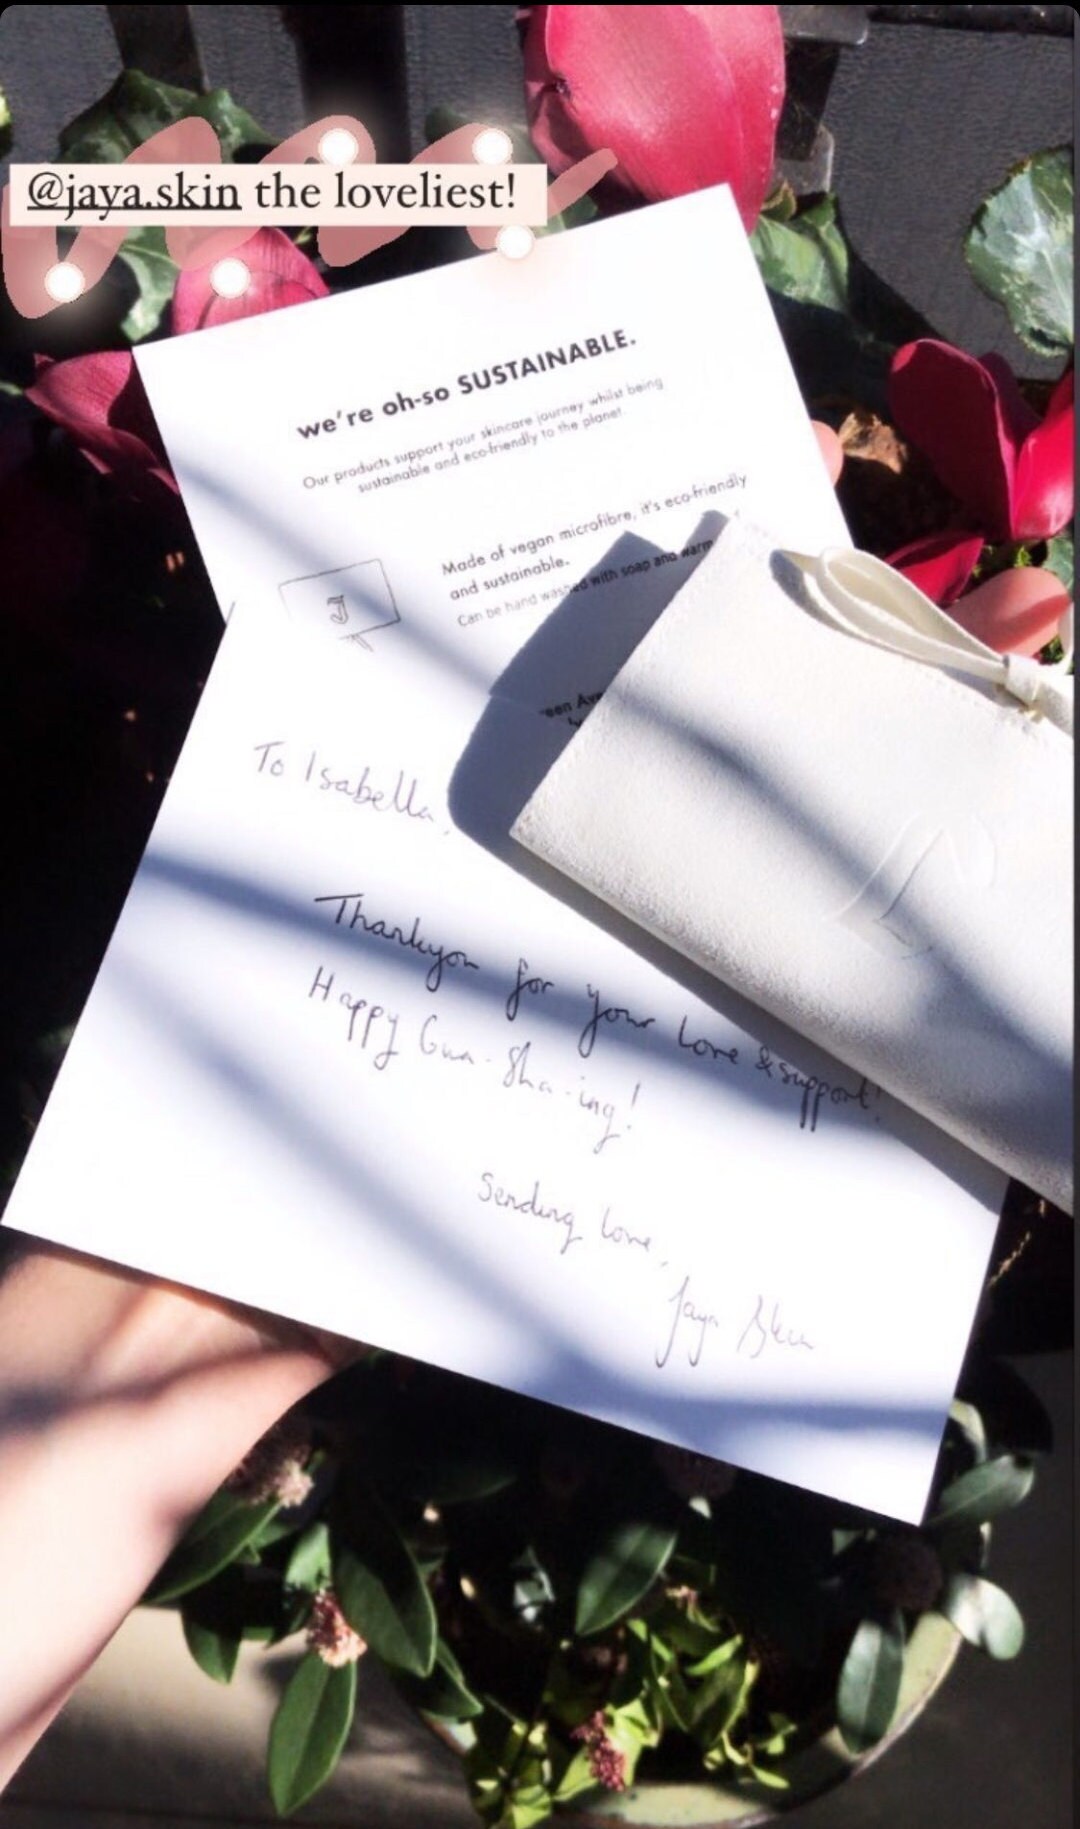 @jaya.skin the loveliest!
we're oh-so SUSTAINABLE.
Our products support your skincare journey whilst being
sustainable and eco-friendly to the planet.
Made of vegan microfibre, it's eco-friendly
and sustainable.
Can be hand washed with soap and warm
J
To Isabella,
Thankyou for your love & support!
Happy Gua-Sha-ing!
Sending love,
Jaya Skin